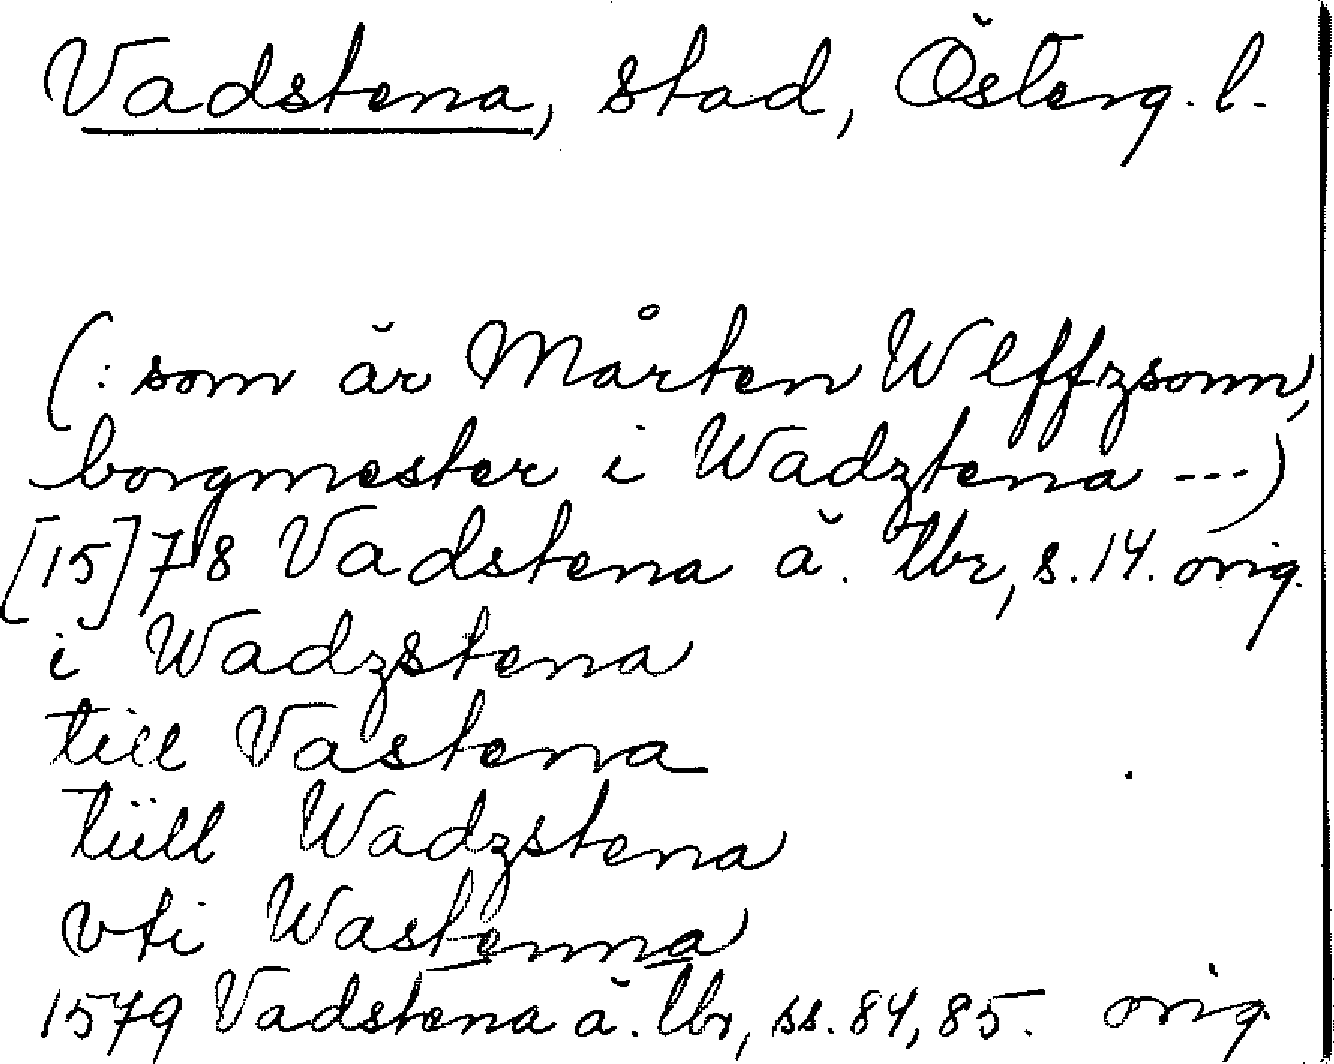 Vadstena, stad, Österg. l.
(: som är Mårten Wlffzsonn,
borgmester i Wadztena ---)
[15]78 Vadstena ä. tbr, s. 14. orig.
i Wadzstena
till Vastena
tiill Wadzstena
vti Wastenna
1579 Vadstena ä. tbr, ss. 84, 85. orig.